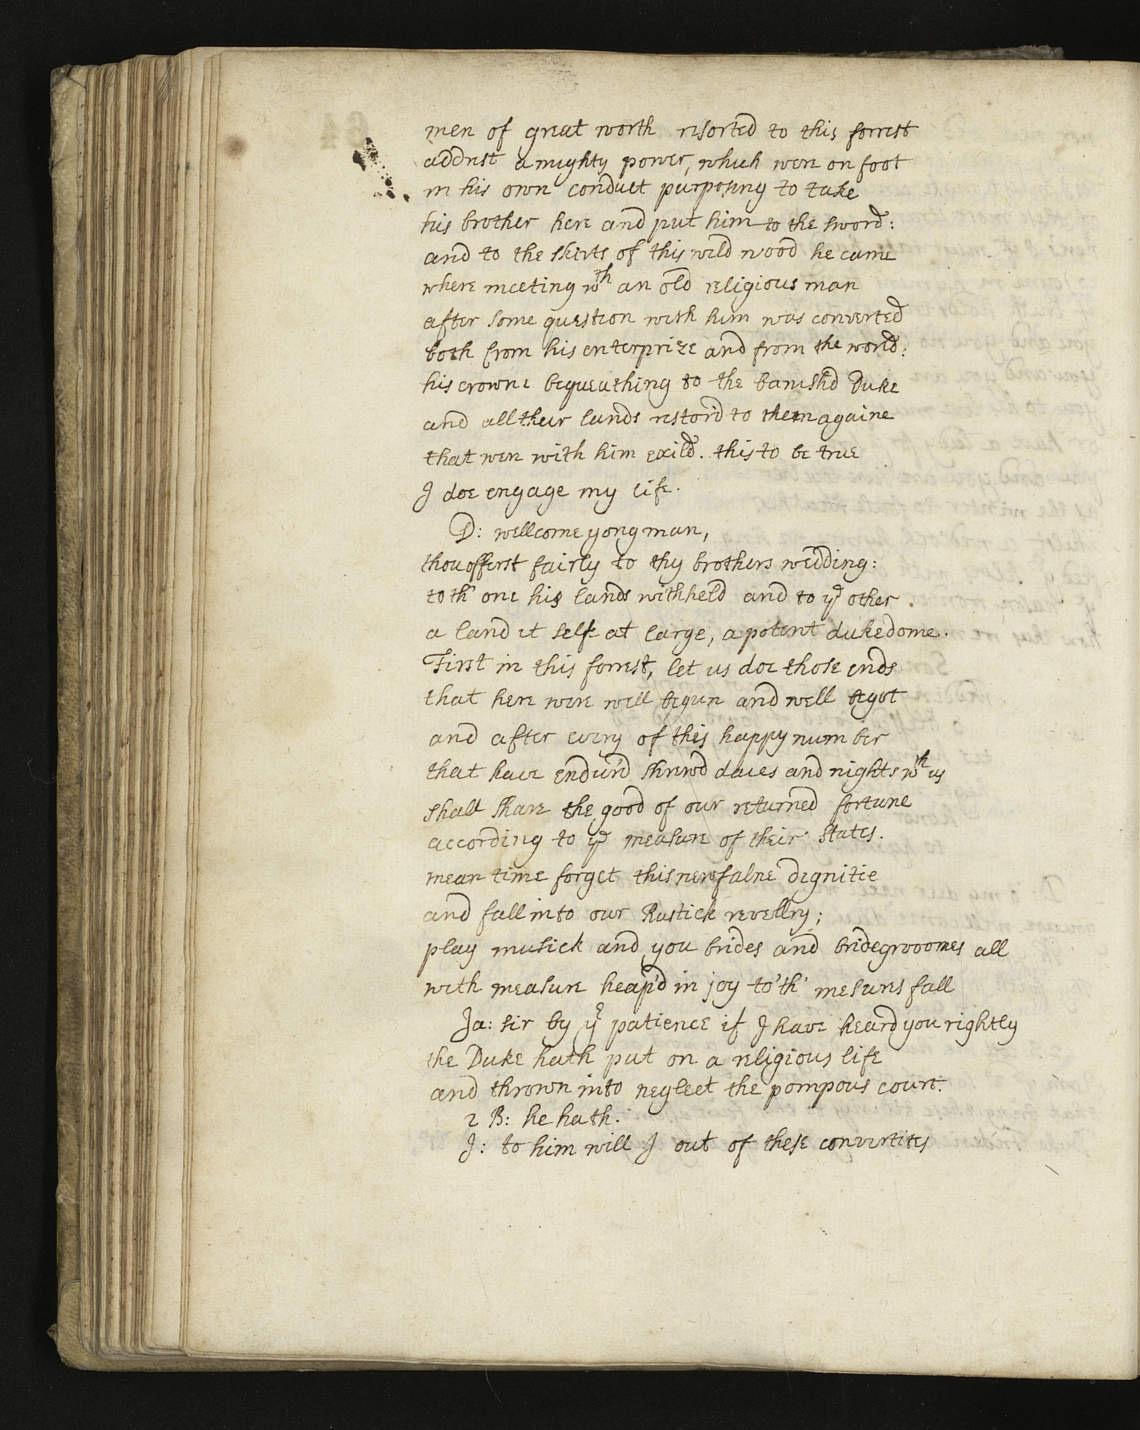 men of great worth resorted to this forrest
addrest a mighty power, which were on foot
in his own conduct purposing to take
his brother here and put him to the sword:
and to the skirts of this wild wood he came
where meeting wth an old religious man
after some question with him was converted
both from his enterprize and from the world:
his crowne bequeathing to the banish'd Duke
and all their lands restor'd to them againe
that were with him exild. this to be true
I doe engage my life.
D: wellcome yong man,
thou offerst fairly to thy brothers wedding:
to th' one his lands withheld and to ye other.
a land it self at large, a potent dukedome.
First in this forrest, let us doe those ends
that here were well begun and well begot
and after every of this happy number
that have endur'd shrewd daies and nights wth us
shall share the good of our returned fortune
according to ye measure of their states.
mean time forget this new falne dignitie
and fall into our Rustick revellry;
play musick and you brides and bridegrooomes all
with measure heap'd in joy to'th' mesures fall
Ja: sir by yr patience if I have heard you rightly
the Duke hath put on a religious life
and thrown into neglect the pompous court.
2 B: he hath.
J: to him will I out of these convertites